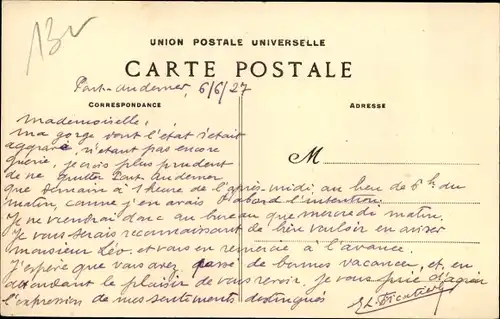 13v
UNION POSTALE UNIVERSELLE
CARTE POSTALE
Pont-Audemer, 6/6/27
CORRESPONDANCE
ADRESSE
M
Mademoiselle,
ma gorge dont l'état s'était
aggravé, n'étant pas encore
guérie, je crois plus prudent
de ne quitter Pont Audemer
que demain à 1 heure de l'après-midi, au lieu de 5h du
matin, comme j'en avais d'abord l'intention.
Je ne viendrai donc au bureau que mercredi matin.
Je vous serais reconnaissant de bien vouloir en aviser
monsieur Léo, et vous en remercie à l'avance.
J'espère que vous avez passé de bonnes vacances, et, en
attendant le plaisir de vous revoir, je vous prie d'agréer
l'expression de mes sentiments distingués